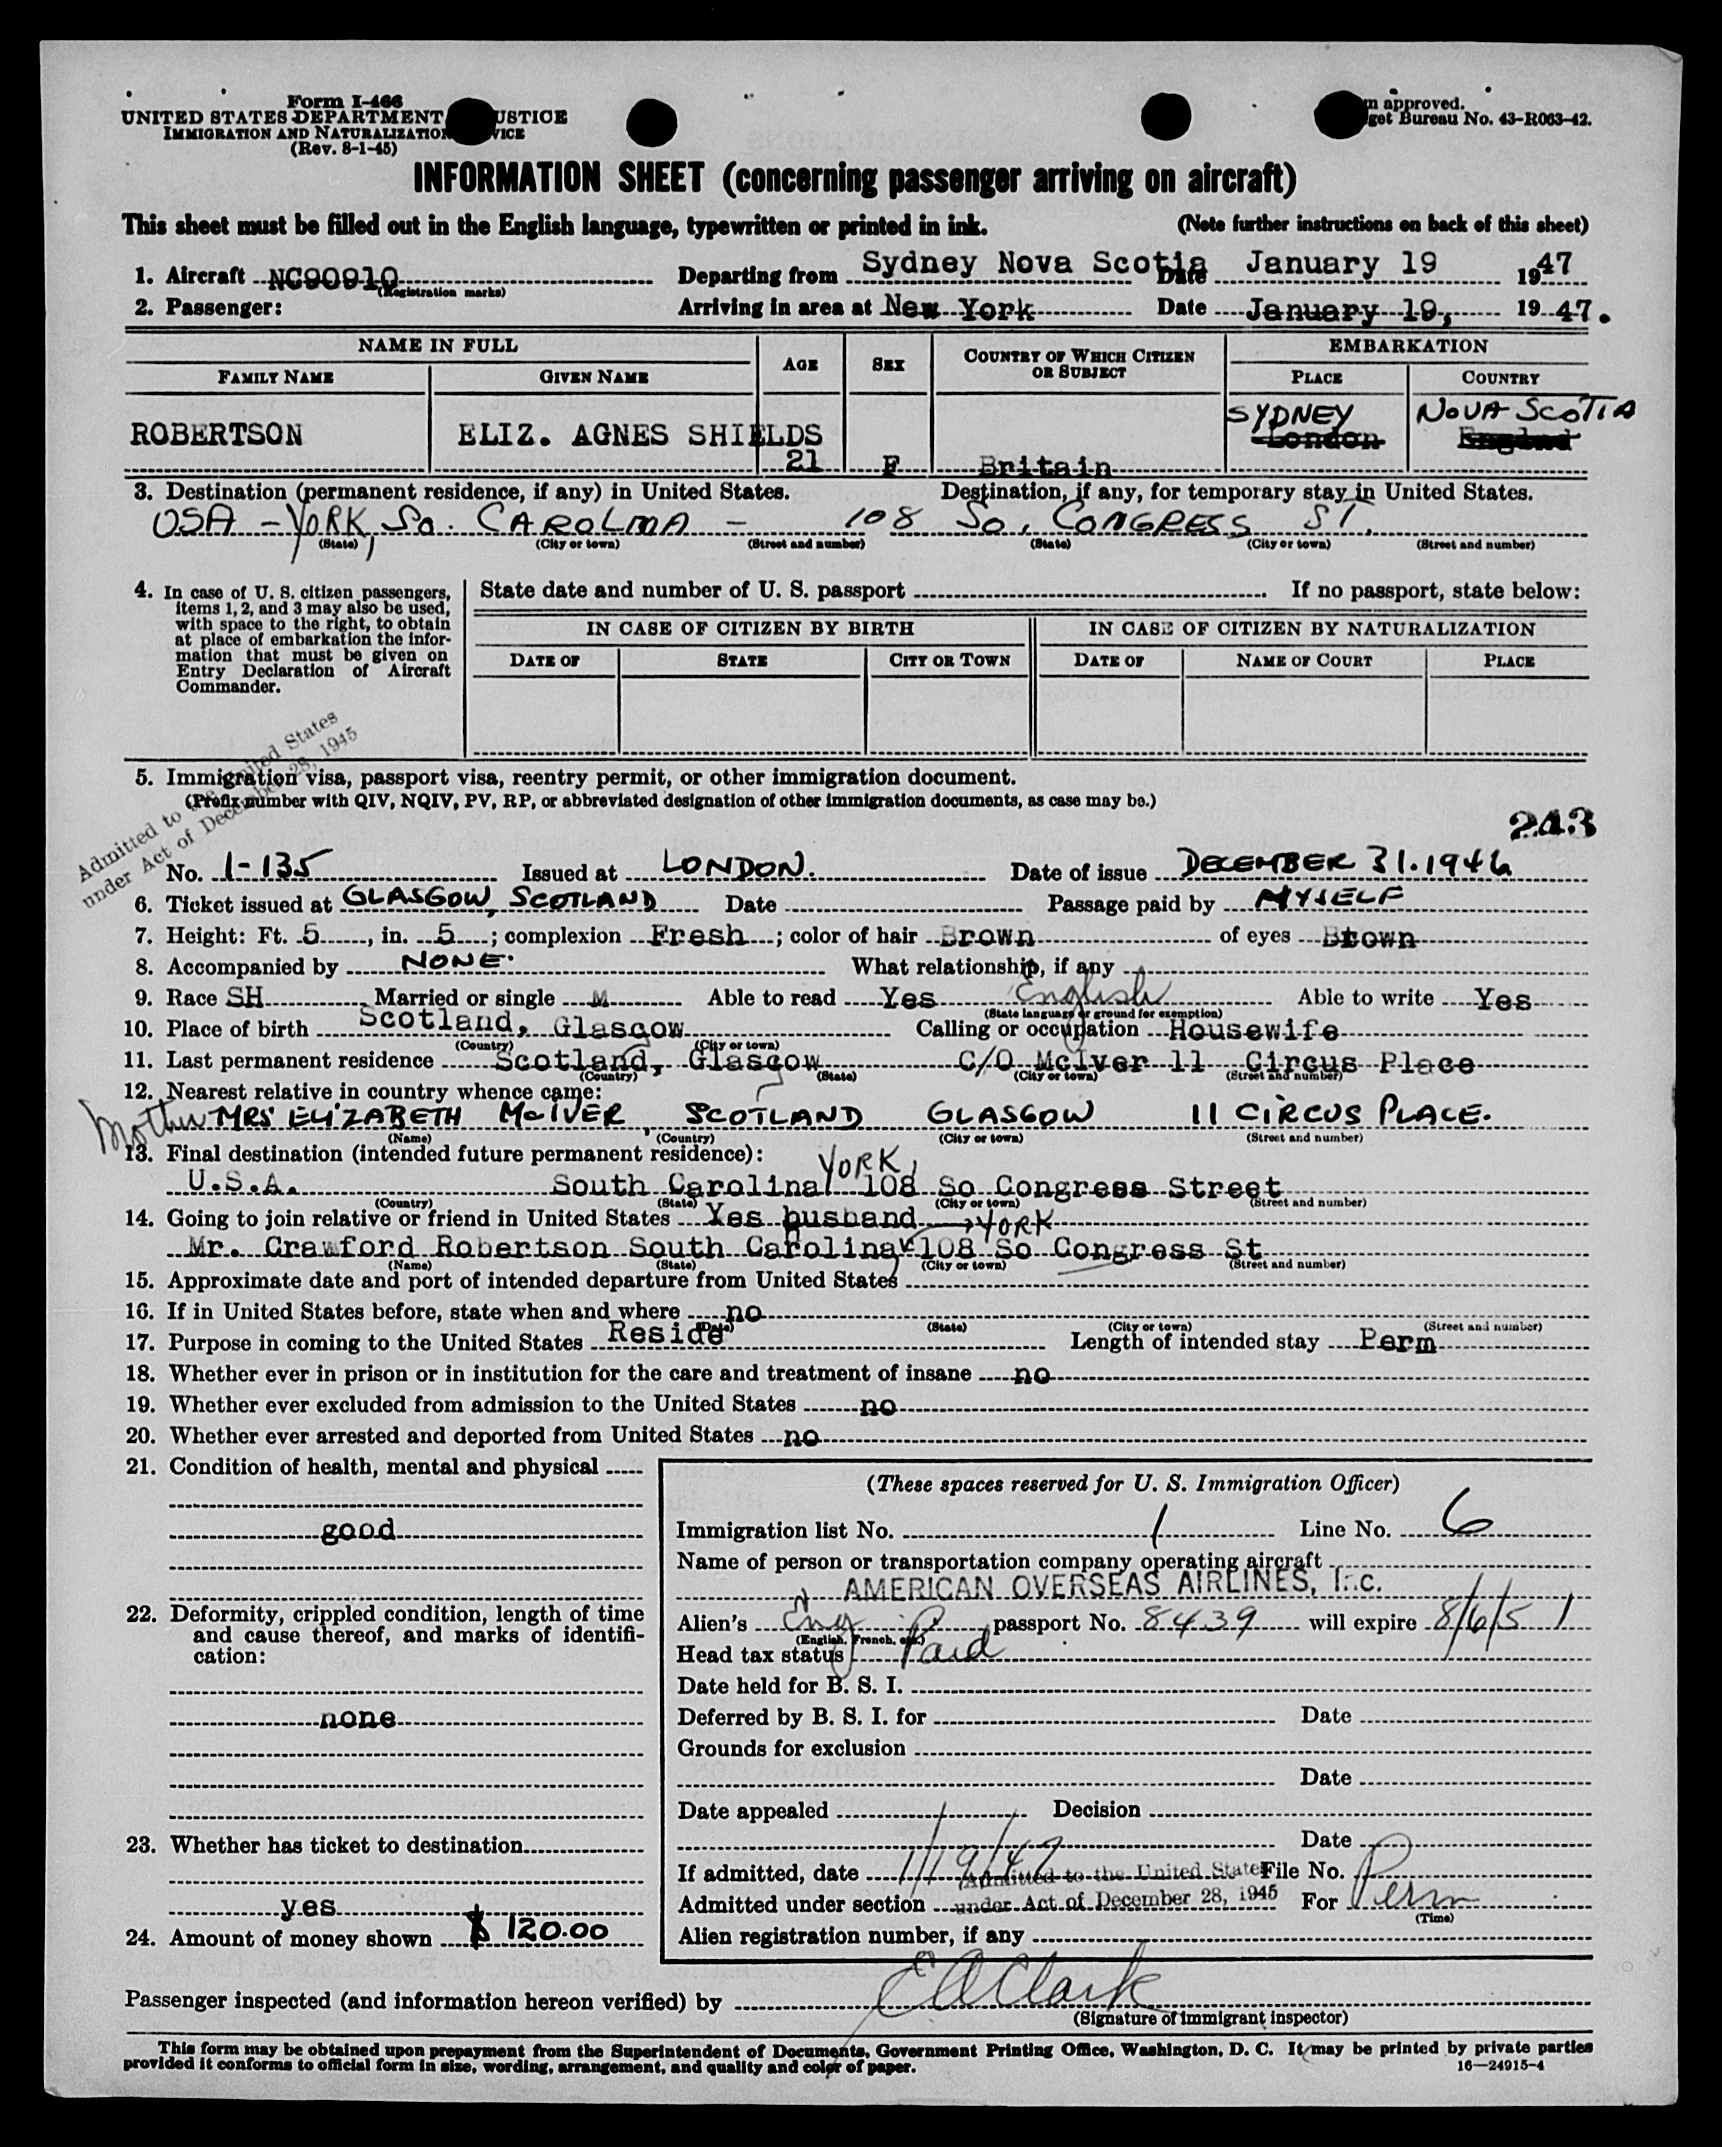 Form I-466
UNITED STATES DEPARTMENT JUSTICE
IMMIGRATION AND NATURALIZATION
(Rev. 8-1-45)
approved.
Bureau No. 43-R063-42.
INFORMATION SHEET (concerning passenger arriving on aircraft)
This sheet must be filled out in the English language, typewritten or printed in ink. (Note further instructions on back of this sheet)
1. Aircraft NC90910 Departing from Sydney Nova Scotia Date January 19 1947
(Registration marks)
2. Passenger: Arriving in area at New York Date January 19, 1947.
NAME IN FULL AGE SEX COUNTRY OF WHICH CITIZEN OR SUBJECT EMBARKATION
FAMILY NAME GIVEN NAME PLACE COUNTRY
SYDNEY NOVA SCOTIA
ROBERTSON ELIZ. AGNES SHIELDS London England
21 F Britain
3. Destination (permanent residence, if any) in United States. Destination, if any, for temporary stay in United States.
USA - YORK, SO. CAROLINA - 108 SO. CONGRESS ST.
(State) (City or town) (Street and number) (State) (City or town) (Street and number)
4. In case of U. S. citizen passengers, items 1, 2, and 3 may also be used, with space to the right, to obtain at place of embarkation the information that must be given on Entry Declaration of Aircraft Commander.
State date and number of U. S. passport If no passport, state below:
IN CASE OF CITIZEN BY BIRTH IN CASE OF CITIZEN BY NATURALIZATION
DATE OF STATE CITY OR TOWN DATE OF NAME OF COURT PLACE
Admitted to the United States
under Act of December 28, 1945
5. Immigration visa, passport visa, reentry permit, or other immigration document.
(Prefix number with QIV, NQIV, PV, RP, or abbreviated designation of other immigration documents, as case may be.)
243
No. 1-135 Issued at LONDON. Date of issue DECEMBER 31.1946
6. Ticket issued at GLASGOW, SCOTLAND Date Passage paid by MYSELF
7. Height: Ft. 5, in. 5; complexion Fresh; color of hair Brown of eyes Btown
8. Accompanied by NONE. What relationship, if any
9. Race SH Married or single M Able to read Yes English Able to write Yes
(State language or ground for exemption)
10. Place of birth Scotland, Glasgow Calling or occupation Housewife
(Country) (City or town)
11. Last permanent residence Scotland, Glasgow C/O McIver 11 Circus Place
(Country) (State) (City or town) (Street and number)
12. Nearest relative in country whence came:
Mother MRS ELIZABETH McIVER, SCOTLAND GLASGOW 11 CIRCUS PLACE.
(Name) (Country) (City or town) (Street and number)
13. Final destination (intended future permanent residence):
YORK,
U.S.A. South Carolina 108 So Congress Street
(Country) (State) (City or town) (Street and number)
14. Going to join relative or friend in United States Yes husband YORK
Mr. Crawford Robertson South Carolina 108 So Congress St
(Name) (State) (City or town) (Street and number)
15. Approximate date and port of intended departure from United States
16. If in United States before, state when and where no
(Date) (State) (City or town) (Street and number)
17. Purpose in coming to the United States Reside Length of intended stay Perm
18. Whether ever in prison or in institution for the care and treatment of insane no
19. Whether ever excluded from admission to the United States no
20. Whether ever arrested and deported from United States no
21. Condition of health, mental and physical
good
22. Deformity, crippled condition, length of time and cause thereof, and marks of identification:
none
23. Whether has ticket to destination
yes
24. Amount of money shown $ 120.00
(These spaces reserved for U. S. Immigration Officer)
Immigration list No. 1 Line No. 6
Name of person or transportation company operating aircraft
AMERICAN OVERSEAS AIRLINES, Inc.
Alien's Eng passport No. 8439 will expire 8/6/51
(English, French, etc.)
Head tax status Paid
Date held for B. S. I.
Deferred by B. S. I. for Date
Grounds for exclusion
Date
Date appealed Decision
Date
If admitted, date 1/19/47 Admitted to the United States File No.
Admitted under section under Act of December 28, 1945 For Perm
(Time)
Alien registration number, if any
Passenger inspected (and information hereon verified) by E A Clark
(Signature of immigrant inspector)
This form may be obtained upon prepayment from the Superintendent of Documents, Government Printing Office, Washington, D. C. It may be printed by private parties
provided it conforms to official form in size, wording, arrangement, and quality and color of paper. 16—24915-4